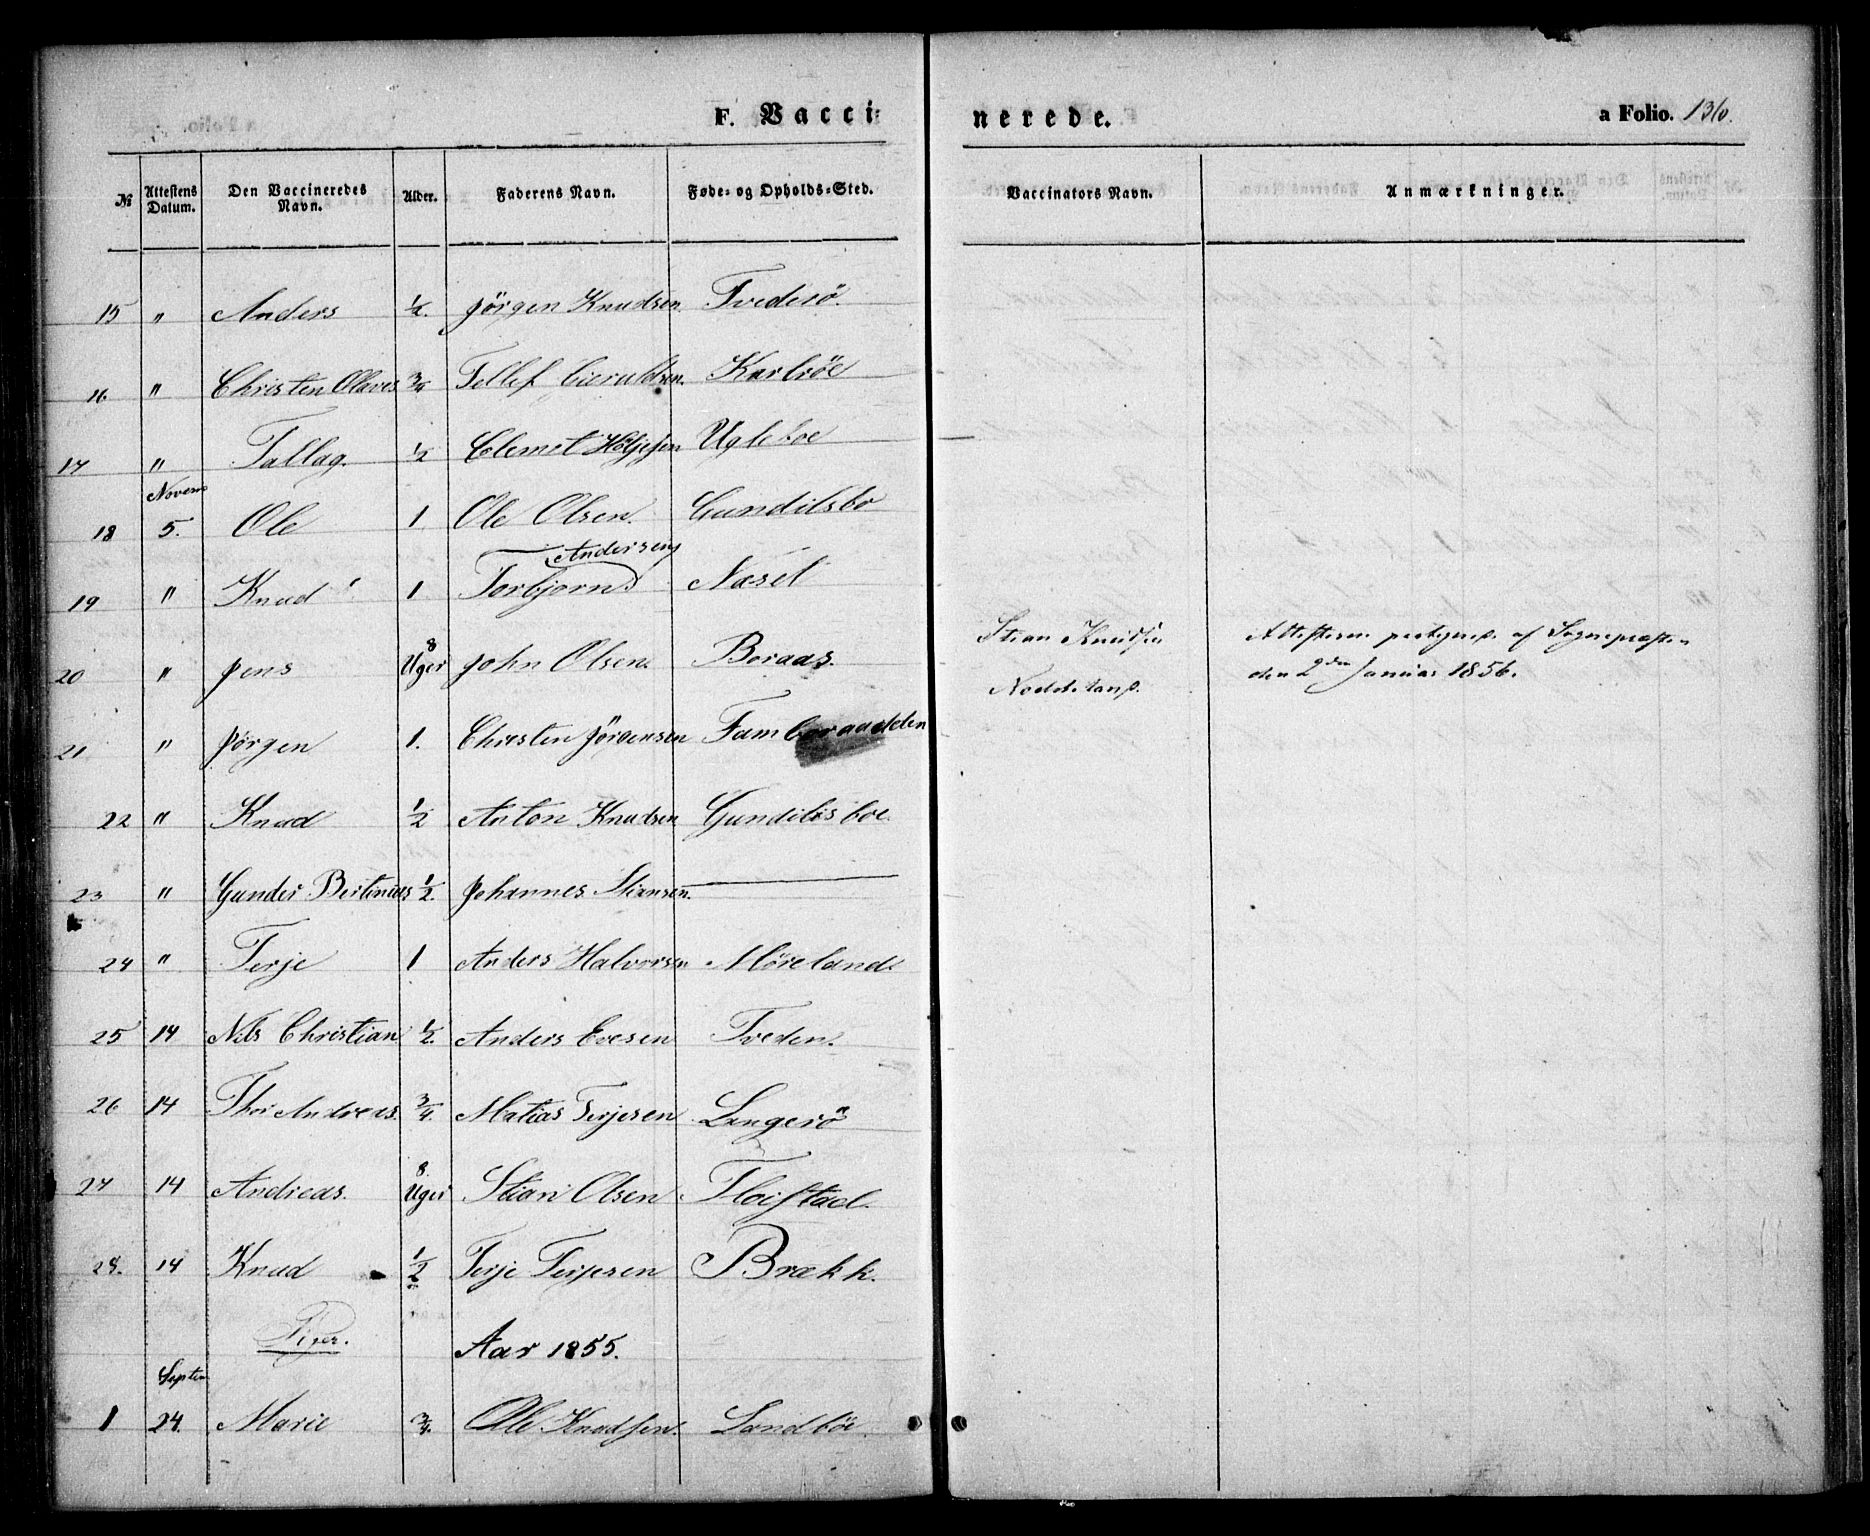 F. Vaccinerede. a Folio. 136.
№ Attestens Datum. Den Vaccineredes Navn. Alder. Faderens Navn. Føde- og Opholds-Sted. Vaccinators Navn. Anmærkninger.
15 " Anders 1/2. Jörgen Knudsen Tvederö.
16 " Christen Olaves 3/4 Tellef Gieruldsen. Karböe
17 " Tallag. 1/2 Clemet Höljesen Ugleboe
Novem
18 5. Ole 1 Ole Olsen. Gundilsbo
Andersen
19 " Knud 1 Torbjorn Næsel
20 " Jens 8 Uger John Olsen. Boraas. Stian Knudsen
Attesterne af Sognepræsten
den 2den Januar 1856.
21 " Jörgen 1. Christen Jörgensen Famboraadden
22 " Knud 1/2 Anton Knudsen Gundilsboe
23 " Gunder Bertinius 1/2. Johannes Stiansen. ———
24 " Terje 1 Anders Halvorsen Möreland.
25 14 Nils Christian 1/2. Anders Evesen Tveden.
26 14 Thor Andreas. 3/4. Matias Terjesen Langerö
27 14 Andreas. 8 Uger Stian Olsen Floistad.
28. 14 Knud 1/2 Terje Terjesen Brækk.
Piger. Aar 1855.
Septem
1 24. Marie 3/4. Ole Knudsen. Sandböe.